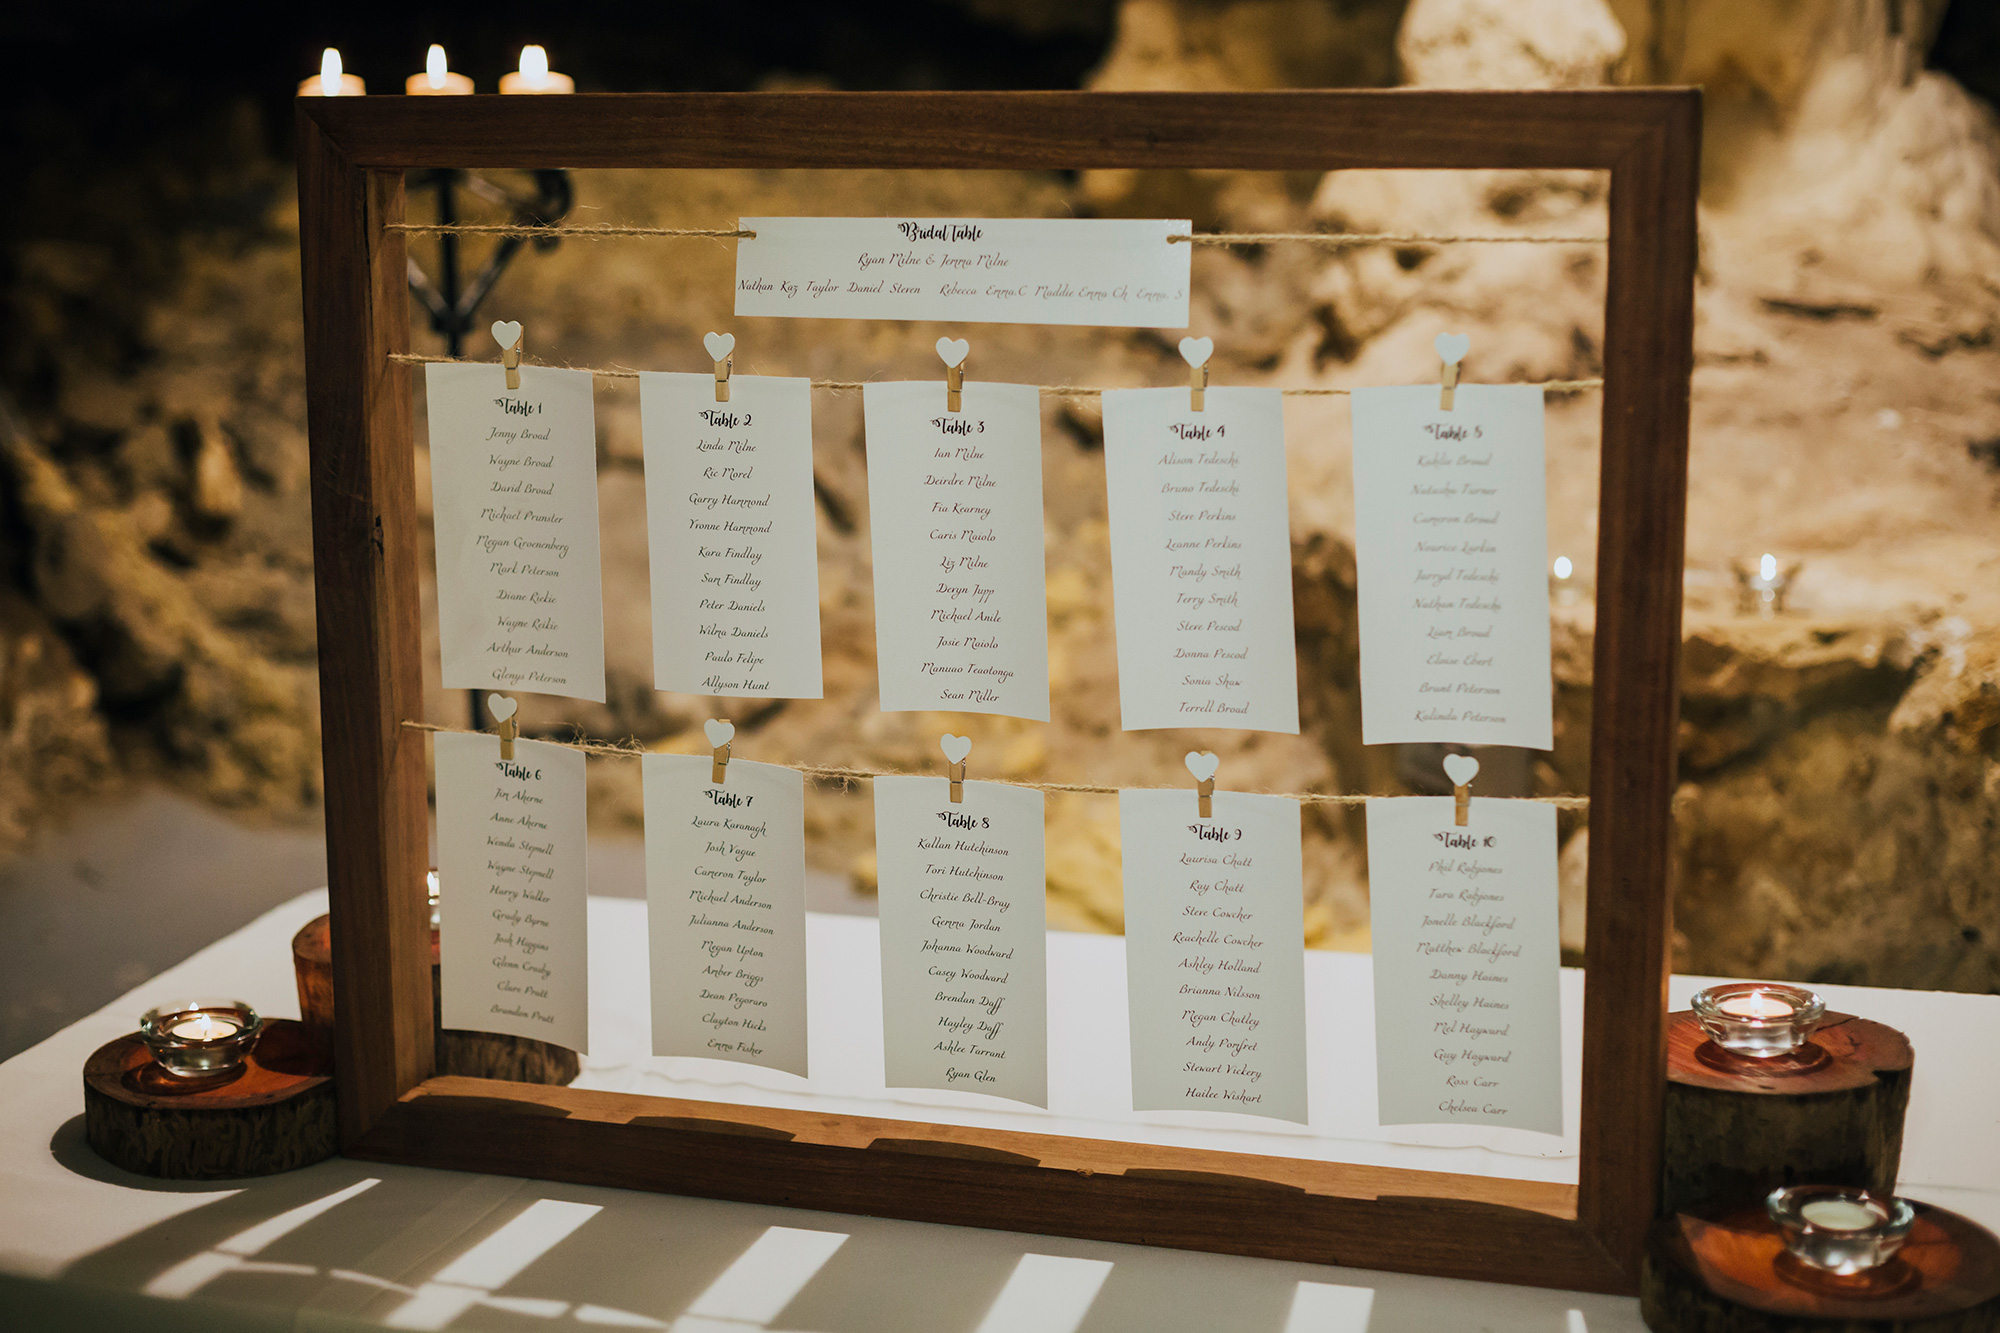 Bridal Table
Ryan Milne & Jemma Milne
Nathan Kaz Taylor Daniel Steven Rebecca Emma.C Maddie Emma Ch Emma. S
Table 1
Jenny Broad
Wayne Broad
David Broad
Michael Prunster
Megan Groenenberg
Mark Peterson
Diane Rickie
Wayne Reikie
Arthur Anderson
Glenys Peterson
Table 2
Linda Milne
Ric Morel
Garry Hammond
Yvonne Hammond
Kara Findlay
Sam Findlay
Peter Daniels
Wilma Daniels
Paulo Felipe
Allyson Hunt
Table 3
Ian Milne
Deirdre Milne
Fia Kearney
Caris Maiolo
Liz Milne
Deryn Jupp
Michael Anile
Josie Maiolo
Manuao Teaotonga
Sean Miller
Table 4
Alison Tedeschi
Bruno Tedeschi
Steve Perkins
Leanne Perkins
Mandy Smith
Terry Smith
Steve Pescod
Donna Pescod
Sonia Shaw
Terrell Broad
Table 5
Kahlie Broad
Natasha Turner
Cameron Broad
Larkin
Jarryd Tedeschi
Nathan Tedeschi
Liam Broad
Eloise Ebert
Brant Peterson
Kalinda Peterson
Table 6
Jim Aherne
Anne Aherne
Wenda Stepnell
Wayne Stepnell
Harry Walker
Grady Byrne
Josh Higgins
Glenn Crosby
Clare Pratt
Brandon Pratt
Table 7
Laura Kavanagh
Josh Vague
Cameron Taylor
Michael Anderson
Julianna Anderson
Megan Upton
Amber Briggs
Dean Pegoraro
Clayton Hicks
Emma Fisher
Table 8
Kallan Hutchinson
Tori Hutchinson
Christie Bell-Bray
Gemma Jordan
Johanna Woodward
Casey Woodward
Brendan Daff
Hayley Daff
Ashlee Tarrant
Ryan Glen
Table 9
Laurisa Chatt
Ray Chatt
Steve Cowcher
Reachelle Cowcher
Ashley Holland
Brianna Nilsson
Megan Chatley
Andy Pomfret
Stewart Vickery
Hailee Wishart
Table 10
Phil Rabjones
Tara Rabjones
Jonelle Blackford
Matthew Blackford
Danny Haines
Shelley Haines
Mel Hayward
Guy Hayward
Ross Carr
Chelsea Carr